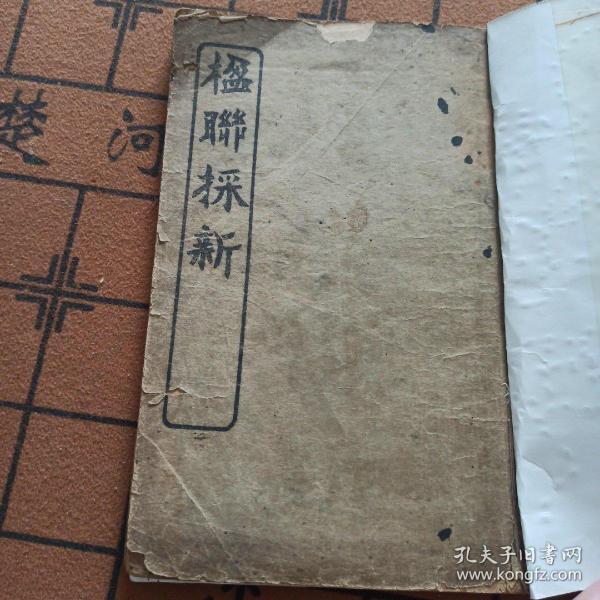 楹聯採新
楚河
孔夫子旧書网
www.kongfz.com